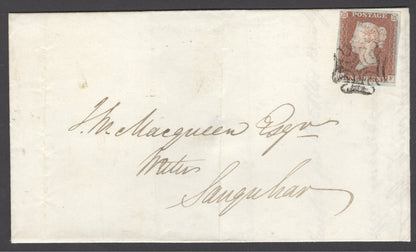 POSTAGE
J. W. Macqueen Esqr
Writer
Sanquhar